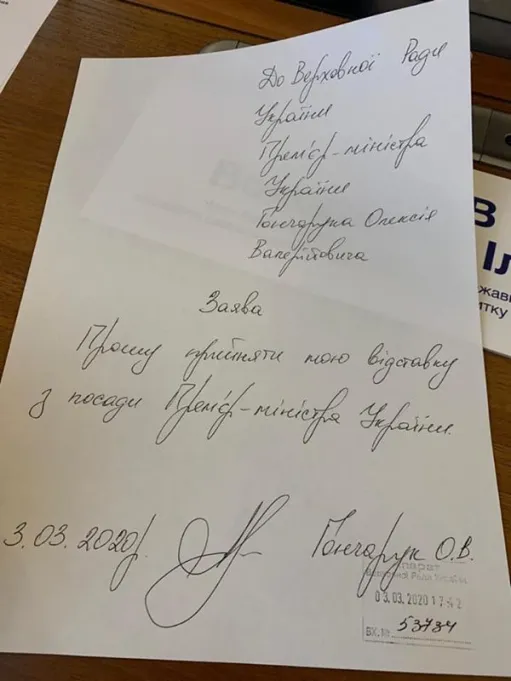 До Верховної Ради
України
Прем'єр-міністра
України
Гончарука Олексія
Валерійовича
Заява
Прошу прийняти мою відставку
з посади Прем'єр-міністра України.
3.03.2020р.
Гончарук О.В.
Апарат
Верховної Ради України
03.03.2020 17
Вх.№ 53734
В
Іл